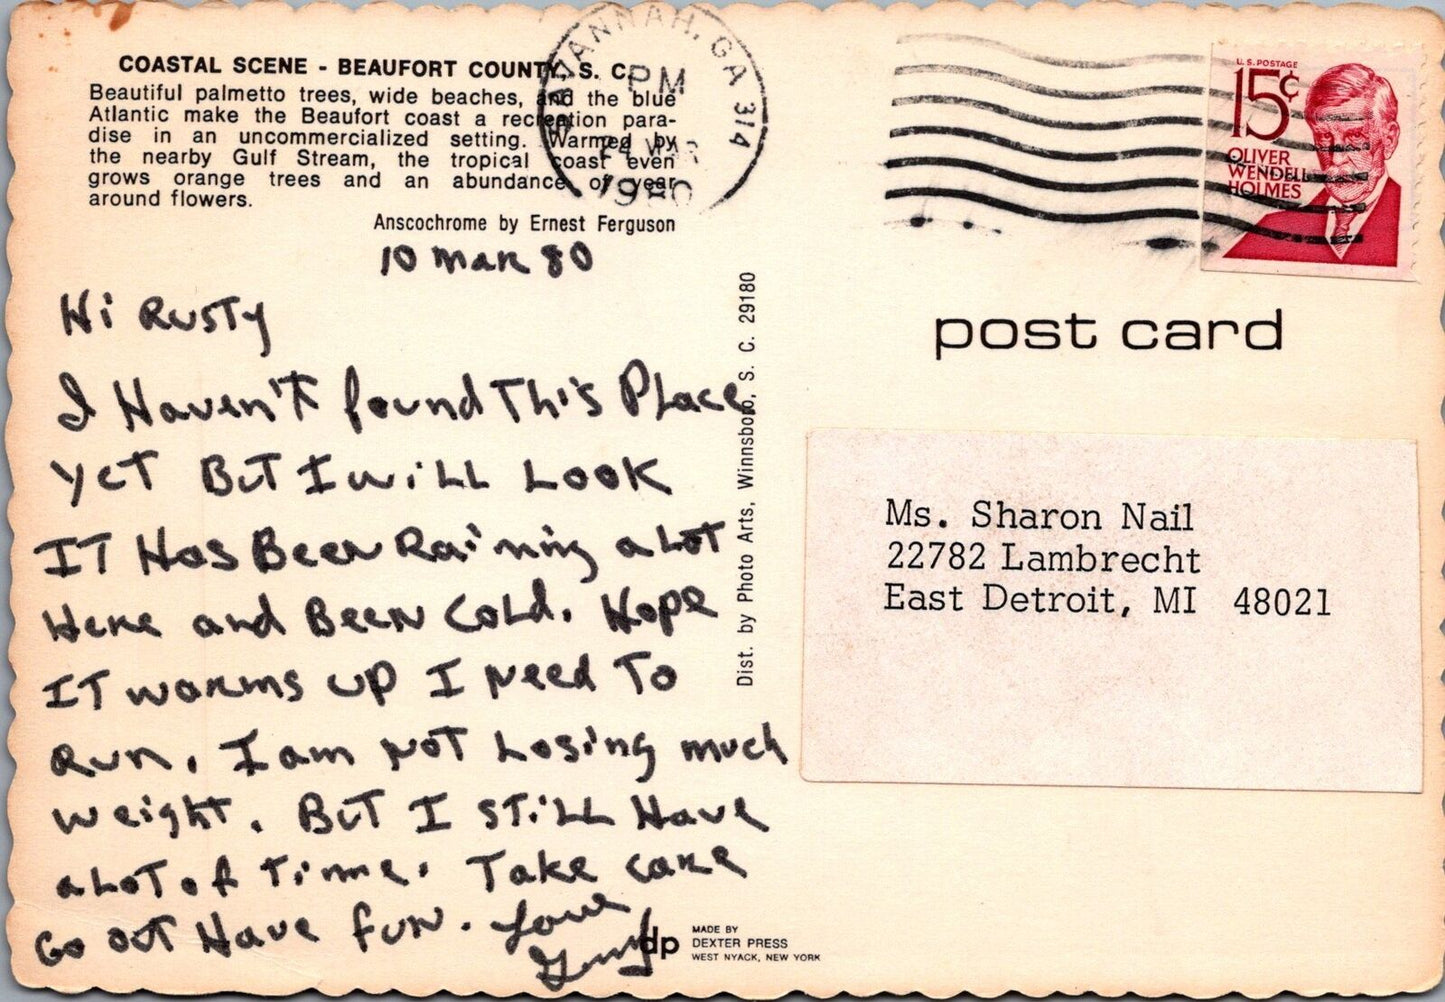 COASTAL SCENE - BEAUFORT COUNTY, S. C.
Beautiful palmetto trees, wide beaches, and the blue
Atlantic make the Beaufort coast a recreation para-
dise in an uncommercialized setting. Warmed by
the nearby Gulf Stream, the tropical coast even
grows orange trees and an abundance of year
around flowers.
Anscochrome by Ernest Ferguson
10 MAR 80
Hi Rusty
I Haven't found This Place
yet But I will Look
It Has Been Raining a Lot
Here and Been Cold. Hope
It warms up I Need To
Run. I am Not Losing much
weight. But I still Have
a Lot of Time. Take care
Go out Have fun. Love
Dist. by Photo Arts, Winnsboro, S. C. 29180
dp
MADE BY
DEXTER PRESS
WEST NYACK, NEW YORK
SAVANNAH, GA 314
PM
1980
U.S. POSTAGE
15¢
OLIVER
WENDELL
HOLMES
post card
Ms. Sharon Nail
22782 Lambrecht
East Detroit, MI 48021